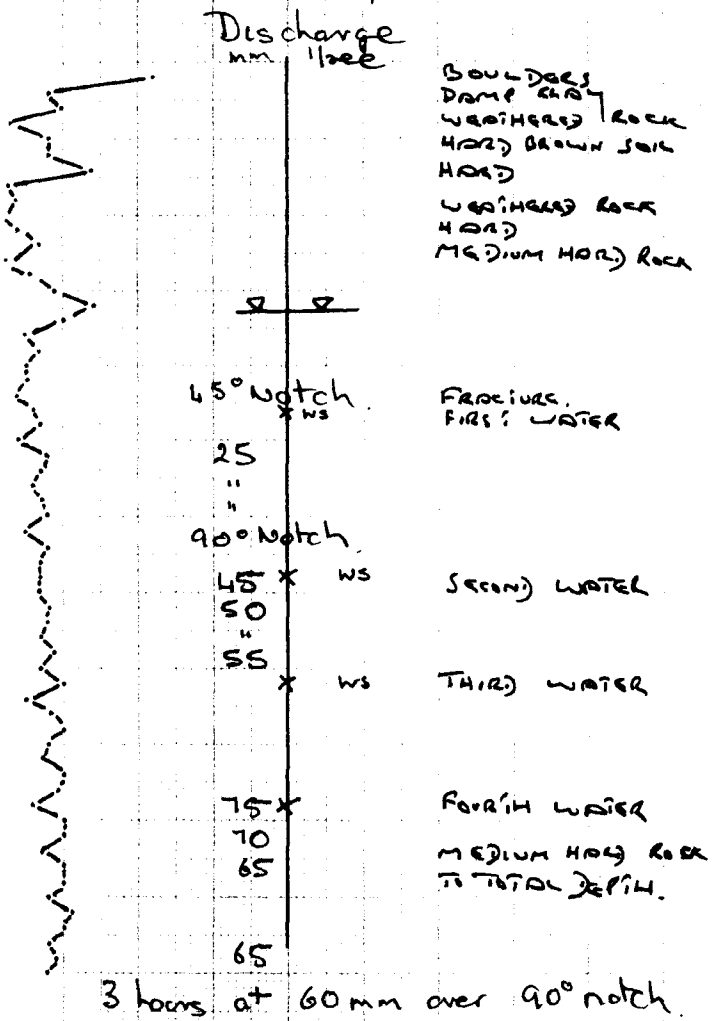 Discharge
mm l/sec
BOULDERS
DAMP CLAY
WEATHERED ROCK
HARD BROWN SOIL
HARD
WEATHERED ROCK
HARD
MEDIUM HARD ROCK
45° Notch. FRACTURE.
WS FIRST WATER
25
"
"
90° Notch.
45 WS SECOND WATER
50
"
55
WS THIRD WATER
75 FOURTH WATER
70
65 MEDIUM HARD ROCK
TO TOTAL DEPTH.
65
3 hours at 60 mm over 90° notch.